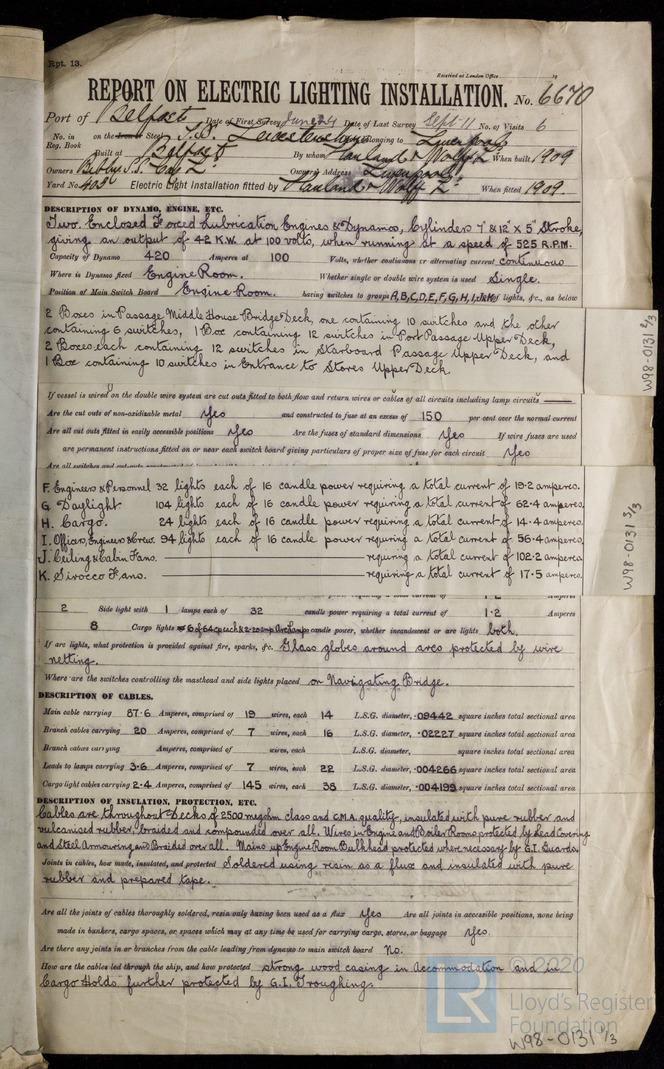 Rpt. 13.
Received at London Office 19
REPORT ON ELECTRIC LIGHTING INSTALLATION. No. 6670
Port of Belfast Date of First Survey June 24 Date of Last Survey Sept 11 No. of Visits 6
No. in Reg. Book on the Iron or Steel S.S. Leicestershire Belonging to Liverpool
Built at Belfast By whom Harland & Wolff Ld When built 1909
Owners Bibby S.S. Coy Ld Owners' Address Liverpool
Yard No. 403 Electric Light Installation fitted by Harland & Wolff Ld When fitted 1909.
DESCRIPTION OF DYNAMO, ENGINE, ETC.
Two Enclosed Forced Lubrication Engines & Dynamos, Cylinders 7" & 12" x 5" Stroke,
giving an output of 42 K.W. at 100 volts, when running at a speed of 525 R.P.M.
Capacity of Dynamo 420 Amperes at 100 Volts, whether continuous or alternating current continuous
Where is Dynamo fixed Engine Room. Whether single or double wire system is used Single.
Position of Main Switch Board Engine Room. having switches to groups A, B, C, D, E, F, G, H, I, J & K of lights, &c., as below
2 Boxes in Passage Middle House Bridge Deck, one containing 10 switches and the other
containing 6 switches, 1 Box containing 12 switches in Port Passage Upper Deck,
2 Boxes each containing 12 switches in Starboard Passage Upper Deck, and
1 Box containing 10 switches in Entrance to Stores Upper Deck
If vessel is wired on the double wire system are cut outs fitted to both flow and return wires or cables of all circuits including lamp circuits
Are the cut outs of non-oxidizable metal Yes and constructed to fuse at an excess of 150 per cent over the normal current
Are all cut outs fitted in easily accessible positions Yes Are the fuses of standard dimensions Yes If wire fuses are used
are permanent instructions fitted on or near each switch board giving particulars of proper size of fuse for each circuit Yes
F. Engineers & Personnel 32 lights each of 16 candle power requiring a total current of 19.2 amperes.
G. Daylight 104 lights each of 16 candle power requiring a total current of 62.4 amperes.
H. Cargo. 24 lights each of 16 candle power requiring a total current of 14.4 amperes.
I. Officers, Engineers & Crew. 94 lights each of 16 candle power requiring a total current of 56.4 amperes.
J. Ceiling & Cabin Fans. requiring a total current of 102.2 amperes
K. Sirocco Fans. requiring a total current of 17.5 amperes.
2 Side light with 1 lamps each of 32 candle power requiring a total current of 1.2 Amperes
8 Cargo lights of 6 of 64 cp each & 2-20 amp Arc Lamps candle power, whether incandescent or arc lights both.
If arc lights, what protection is provided against fire, sparks, &c. Glass globes around arcs protected by wire
netting.
Where are the switches controlling the masthead and side lights placed on Navigating Bridge.
DESCRIPTION OF CABLES.
Main cable carrying 87.6 Amperes, comprised of 19 wires, each 14 L.S.G. diameter, .09442 square inches total sectional area
Branch cables carrying 20 Amperes, comprised of 7 wires, each 16 L.S.G. diameter, .02227 square inches total sectional area
Branch cables carrying Amperes, comprised of wires, each L.S.G. diameter, square inches total sectional area
Leads to lamps carrying 3.6 Amperes, comprised of 7 wires, each 22 L.S.G. diameter, .004266 square inches total sectional area
Cargo light cables carrying 2.4 Amperes, comprised of 145 wires, each 38 L.S.G. diameter, .004199 square inches total sectional area
DESCRIPTION OF INSULATION, PROTECTION, ETC.
Cables are throughout Decks of 2500 megohm class and C.M.A. quality, insulated with pure rubber and
vulcanised rubber, braided and compounded over all. Wires in Engine and Boiler Rooms protected by Lead Covering
and Steel Armouring and Braided over all. Mains up Engine Room Bulkhead protected where necessary by G.I. Guards.
Joints in cables, how made, insulated, and protected Soldered using resin as a flux and insulated with pure
rubber and prepared tape.
Are all the joints of cables thoroughly soldered, resin only having been used as a flux Yes Are all joints in accessible positions, none being
made in bunkers, cargo spaces, or spaces which may at any time be used for carrying cargo, stores, or baggage Yes.
Are there any joints in or branches from the cable leading from dynamo to main switch board No.
How are the cables led through the ship, and how protected strong wood casing in Accommodation and in
Cargo Holds further protected by G.I. Troughing.
W98-0131 2/3
W98-0131 3/3
© 2020
LR
Lloyd's Register
Foundation
W98-0131 1/3